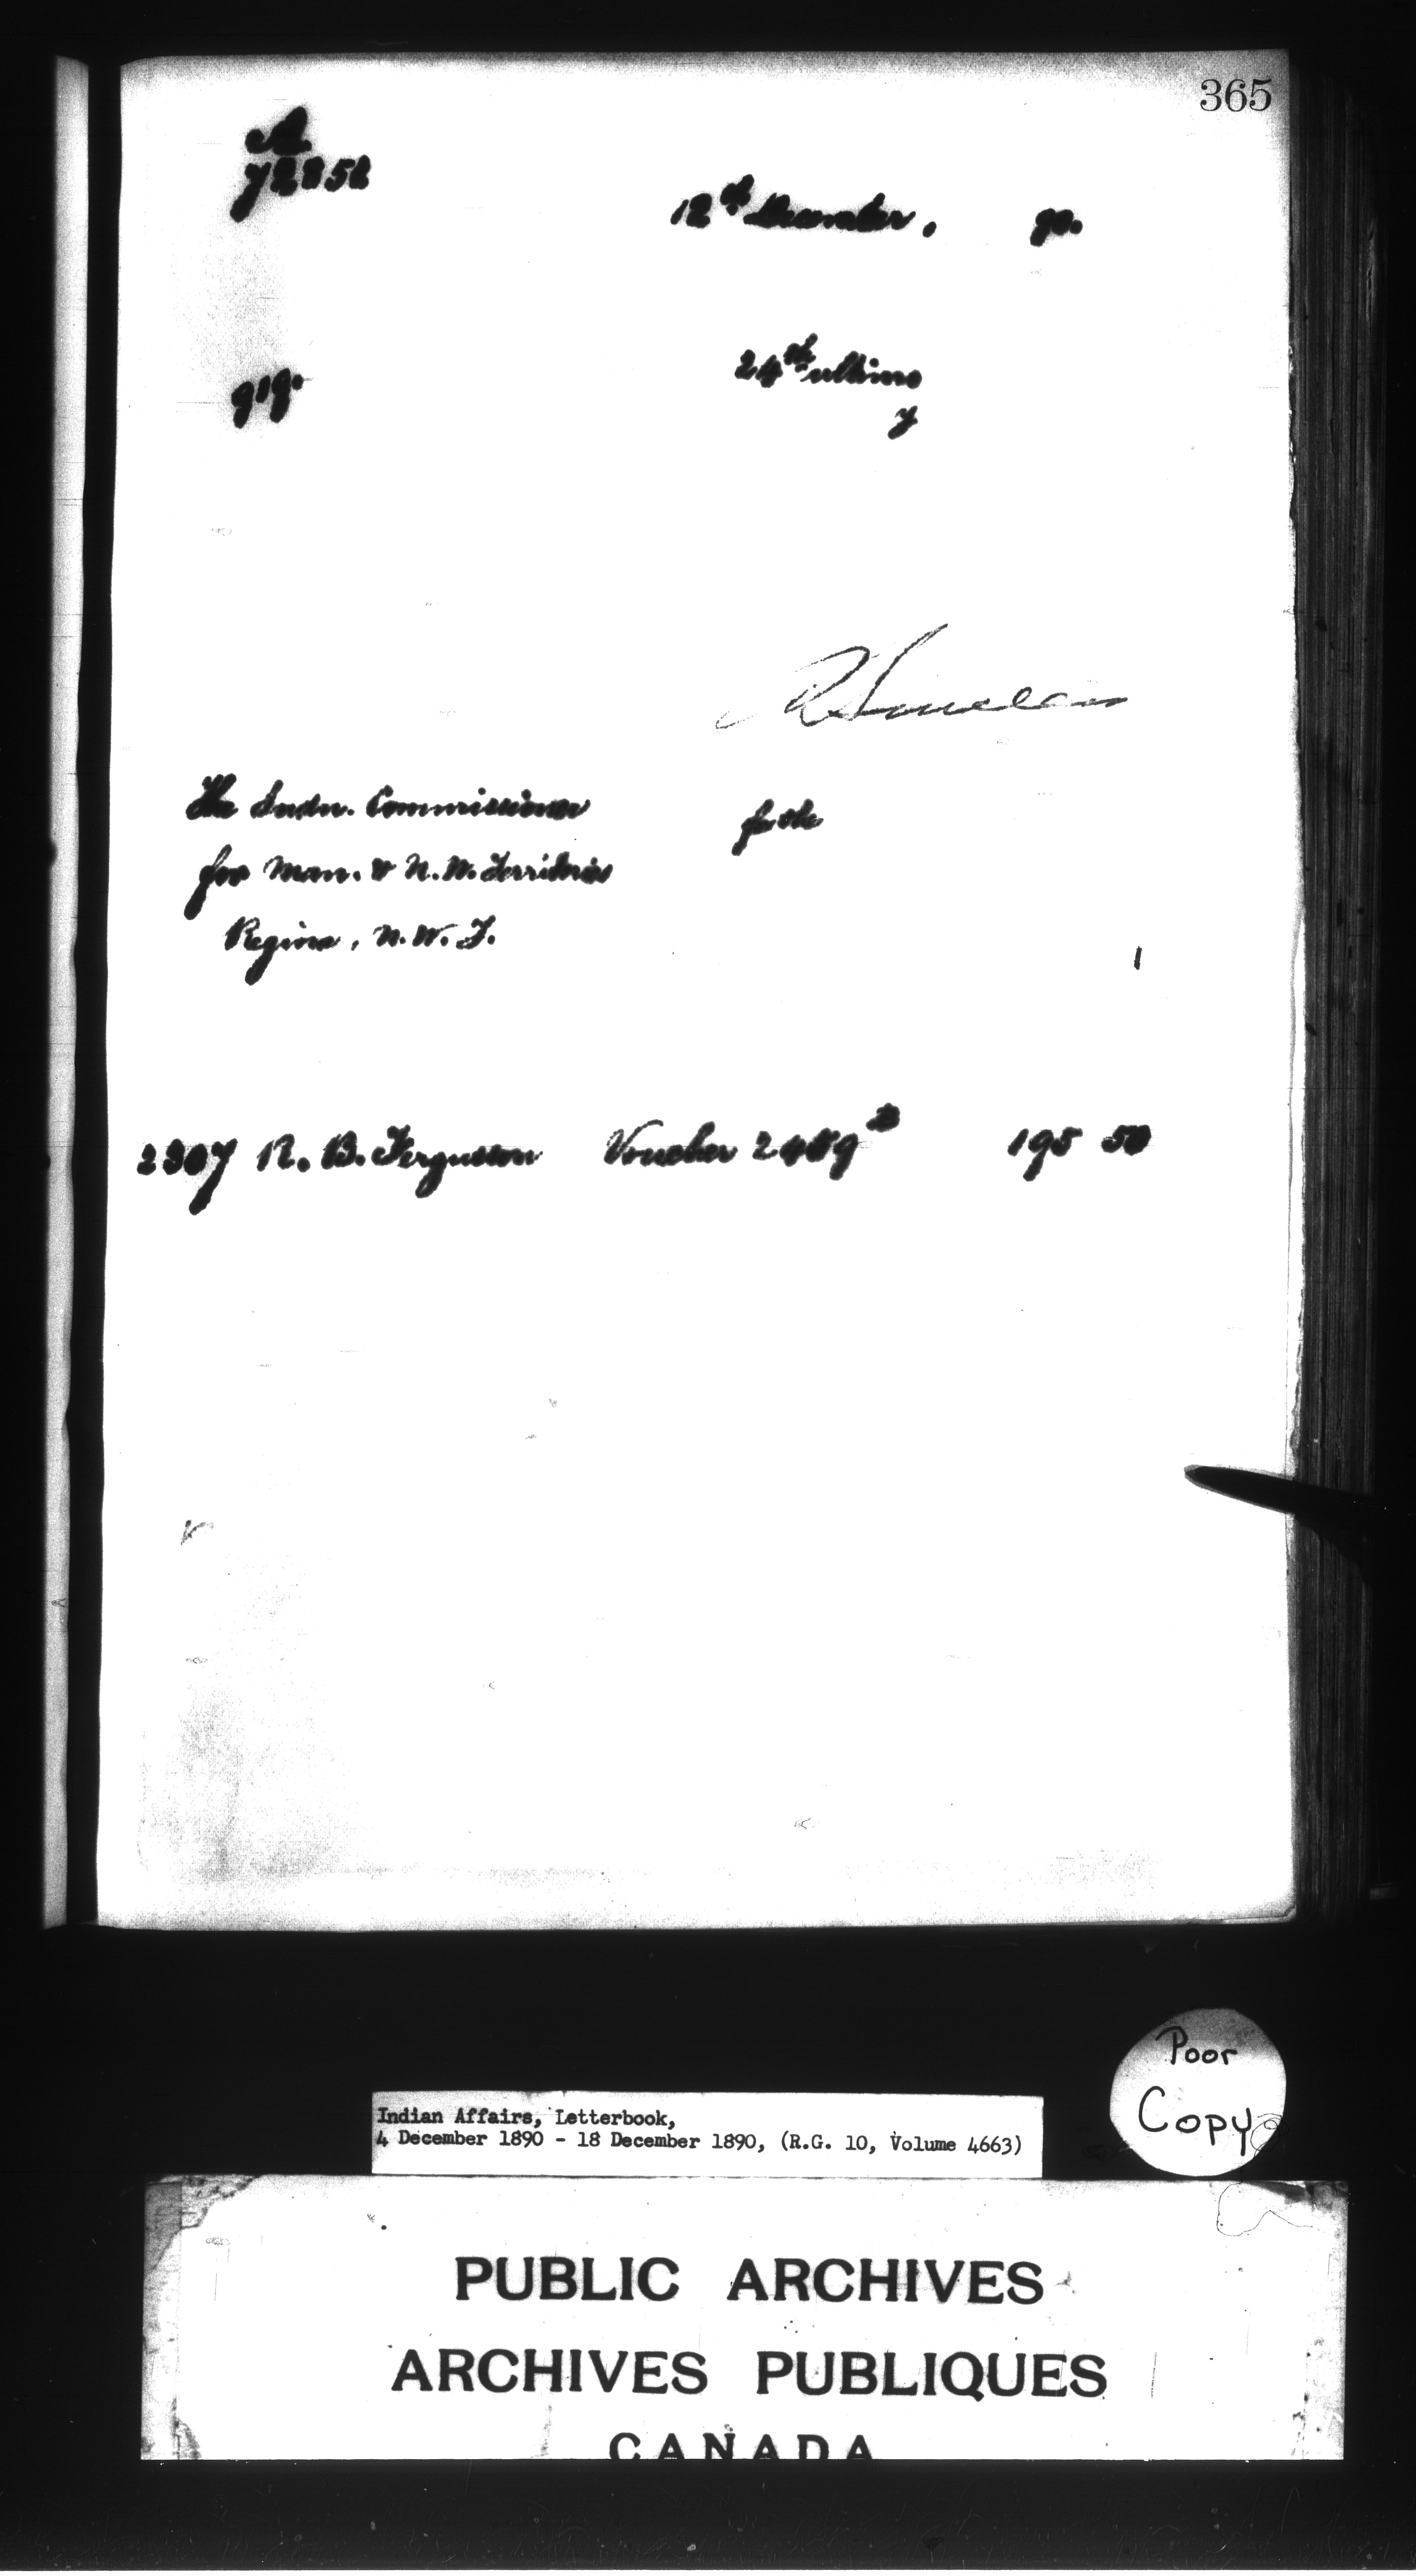 365
A
72852
12th December, 90.
24th ultimo
919.
y
The Indn. Commissioner
for the
for Man. & N.W. Territories
Regina, N.W.T.
2307 R. B. Fergusson Voucher 195 50
Poor
Copy
Indian Affairs, Letterbook,
4 December 1890 - 18 December 1890, (R.G. 10, Volume 4663)
PUBLIC ARCHIVES
ARCHIVES PUBLIQUES
CANADA